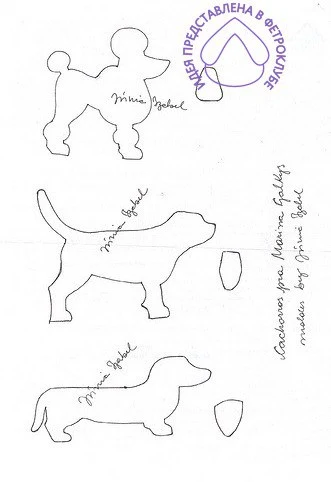 ИДЕЯ ПРЕДСТАВЛЕНА В ФЕТРОКЛУБЕ
Júnia Izabel
Júnia Izabel
Júnia Izabel
Cachorros pra Marina Galkys
moldes by Júnia Izabel